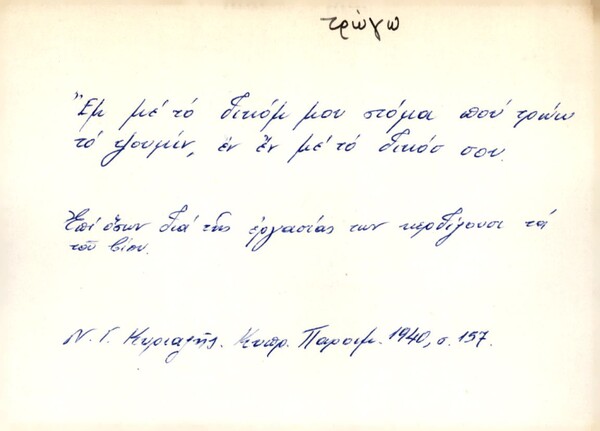 τρώγω
"Εμ μέ τό δικόμ μου στόμα πού τρώω
τό ψουμίν, έν έν μέ τό δικόσ σου.
Ἐπί ὅσων διά τῆς ἐργασίας των κερδίζουσι τά
τοῦ βίου.
Ν. Γ. Κυριαζῆς. Κυπρ. Παροιμ. 1940, σ. 157.